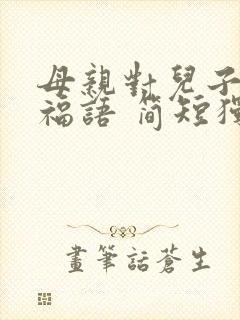 母親對兒子
福語 簡短獨
畫筆話蒼生